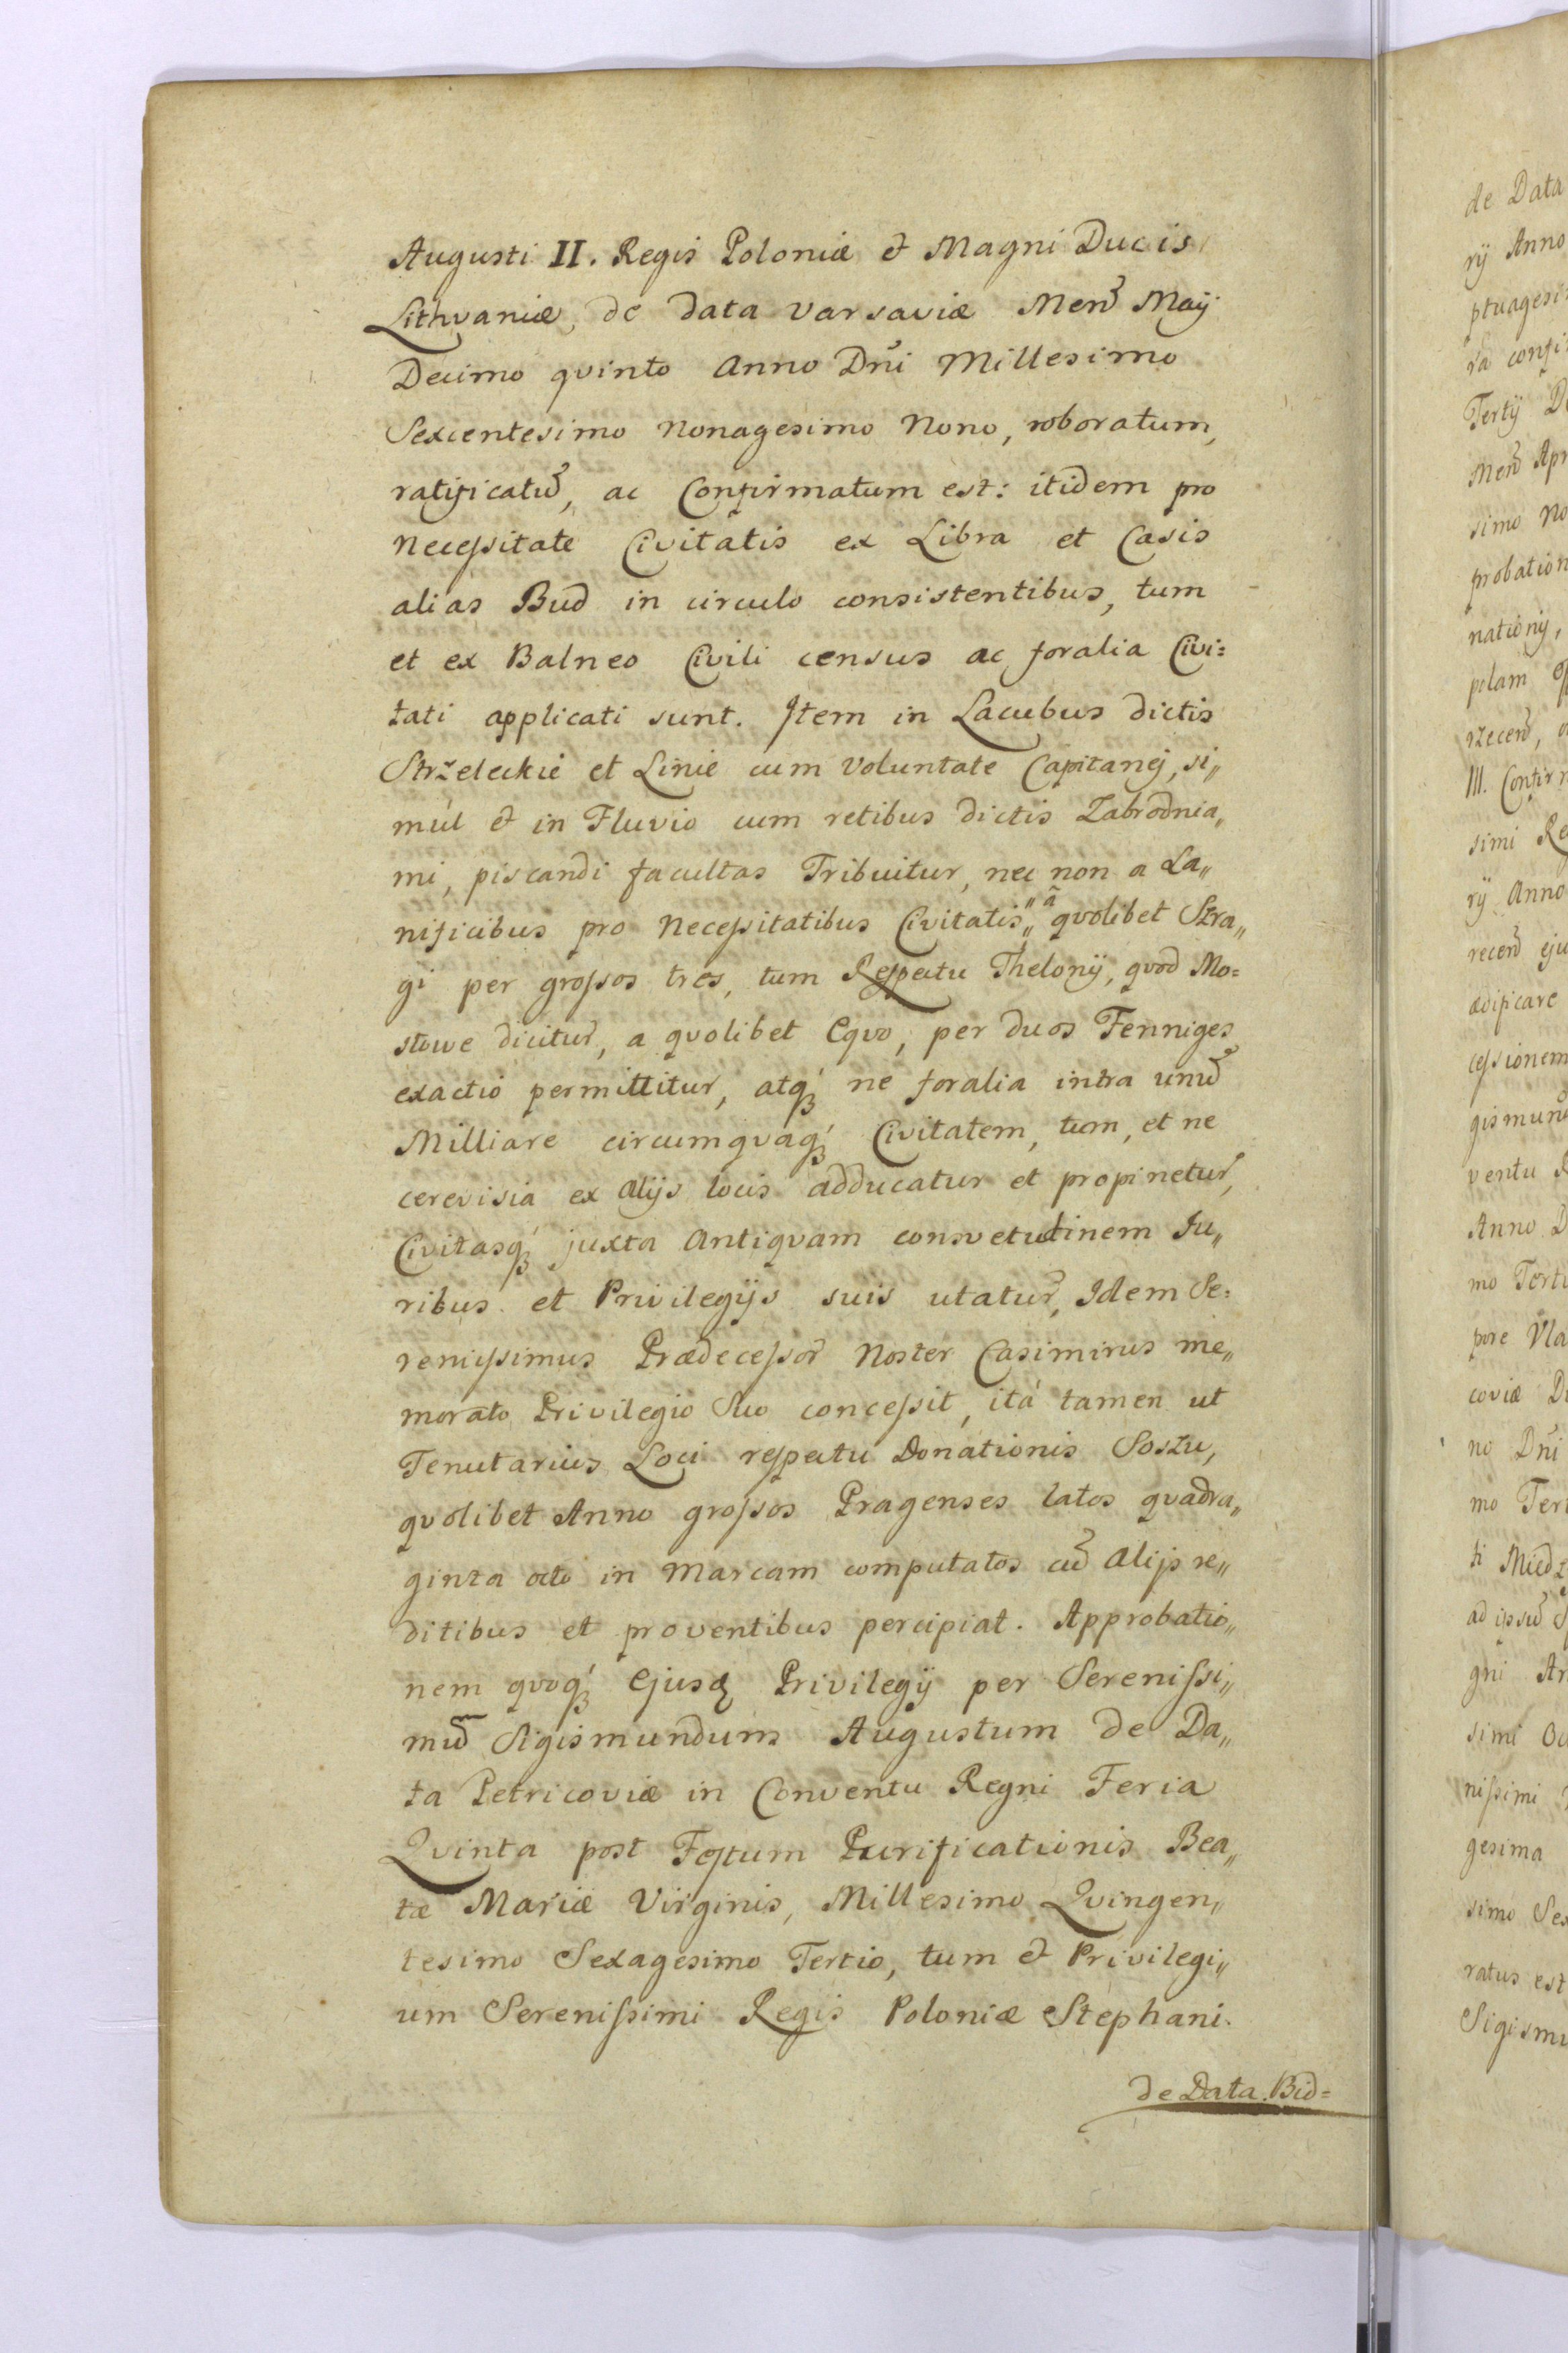 Augusti II. Regis Poloniæ & Magni Ducis
Lithvaniæ, de data Varsaviæ Mens̃ Maij
Decimo qvinto Anno Dñi Millesimo
Sexcentesimo Nonagesimo Nono, roboratum,
ratificatũ, ac Confirmatum est: itidem pro
Necessitate Civitatis ex Libra et Casis
alias Bud in circulo consistentibus, tum
et ex Balneo Civili census ac foralia Civi=
tati applicati sunt. Item in Lacubus dictis
Strżeleckie et Linie cum Voluntate Capitanej, si„
mul & in Fluvio cum retibus dictis Zabrodnia„
mi, piscandi facultas Tribuitur, nec non a La„
nificibus pro Necessitatibus Civitatis „ã„ qvolibet Stra„
gi per grossos tres, tum Respectu Thelonij, qvod Mo=
stowe dicitur, a qvolibet Eqvo, per duos Fenniges
exactio permittitur, atq́ꝫ ne foralia intra unũ
Milliare circumqvaq́ꝫ Civitatem, tum, et ne
cerevisia ex Alijs locis adducatur et propinetur,
Civitasq́ꝫ juxta Antiqvam consvetudinem Ju„
ribus et Privilegijs suis utatur, Idem Se=
renissimus Prædecessor Noster Casimirus me„
morato Privilegio Suo concessit, ità tamen ut
Tenutarius Loci respectu Donationis Sostu,
qvolibet Anno grossos Pragenses latos qvadra„
ginta octo in Marcam computatos cũ Alijs re„
ditibus et proventibus percipiat. Approbatio„
nem qvoq́ꝫ Ejusꝗ Privilegij per Serenissi„
mũ Sigismundum Augustum de Da„
ta Petricoviæ in Conventu Regni Feria
Qvinta post Festum Purificationis Bea„
tæ Mariæ Virginis, Millesimo Qvingen„
tesimo Sexagesimo Tertio, tum & Privilegi„
um Serenissimi Regis Poloniæ Stephani
de Data Bid=
de Data
rij Anno
ptuagesi
ra confi
Tertij
Mens̃ Apr
simo No
probation
nationij,
polam
rżecen̄,
III. Confir
simi Re
rij Anno
recen̄ eju
ædificare
cessionem
gismun
ventu
Anno D
mo Tert
pore Vla
coviæ D
no Dñi
mo Ter
ti Miedz
ad issũ
gni
simi
nissimi
gesima
simo Se
ratus est
Sigismu